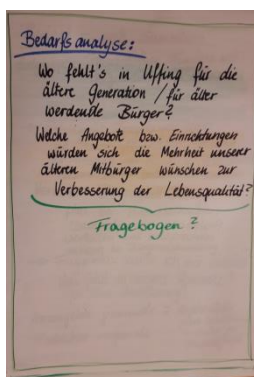 Bedarfsanalyse:
Wo fehlt's in Uffing für die
ältere Generation / für älter
werdende Bürger?
Welche Angebote bzw. Einrichtungen
würden sich die Mehrheit unserer
älteren Mitbürger wünschen zur
Verbesserung der Lebensqualität?
Fragebogen?